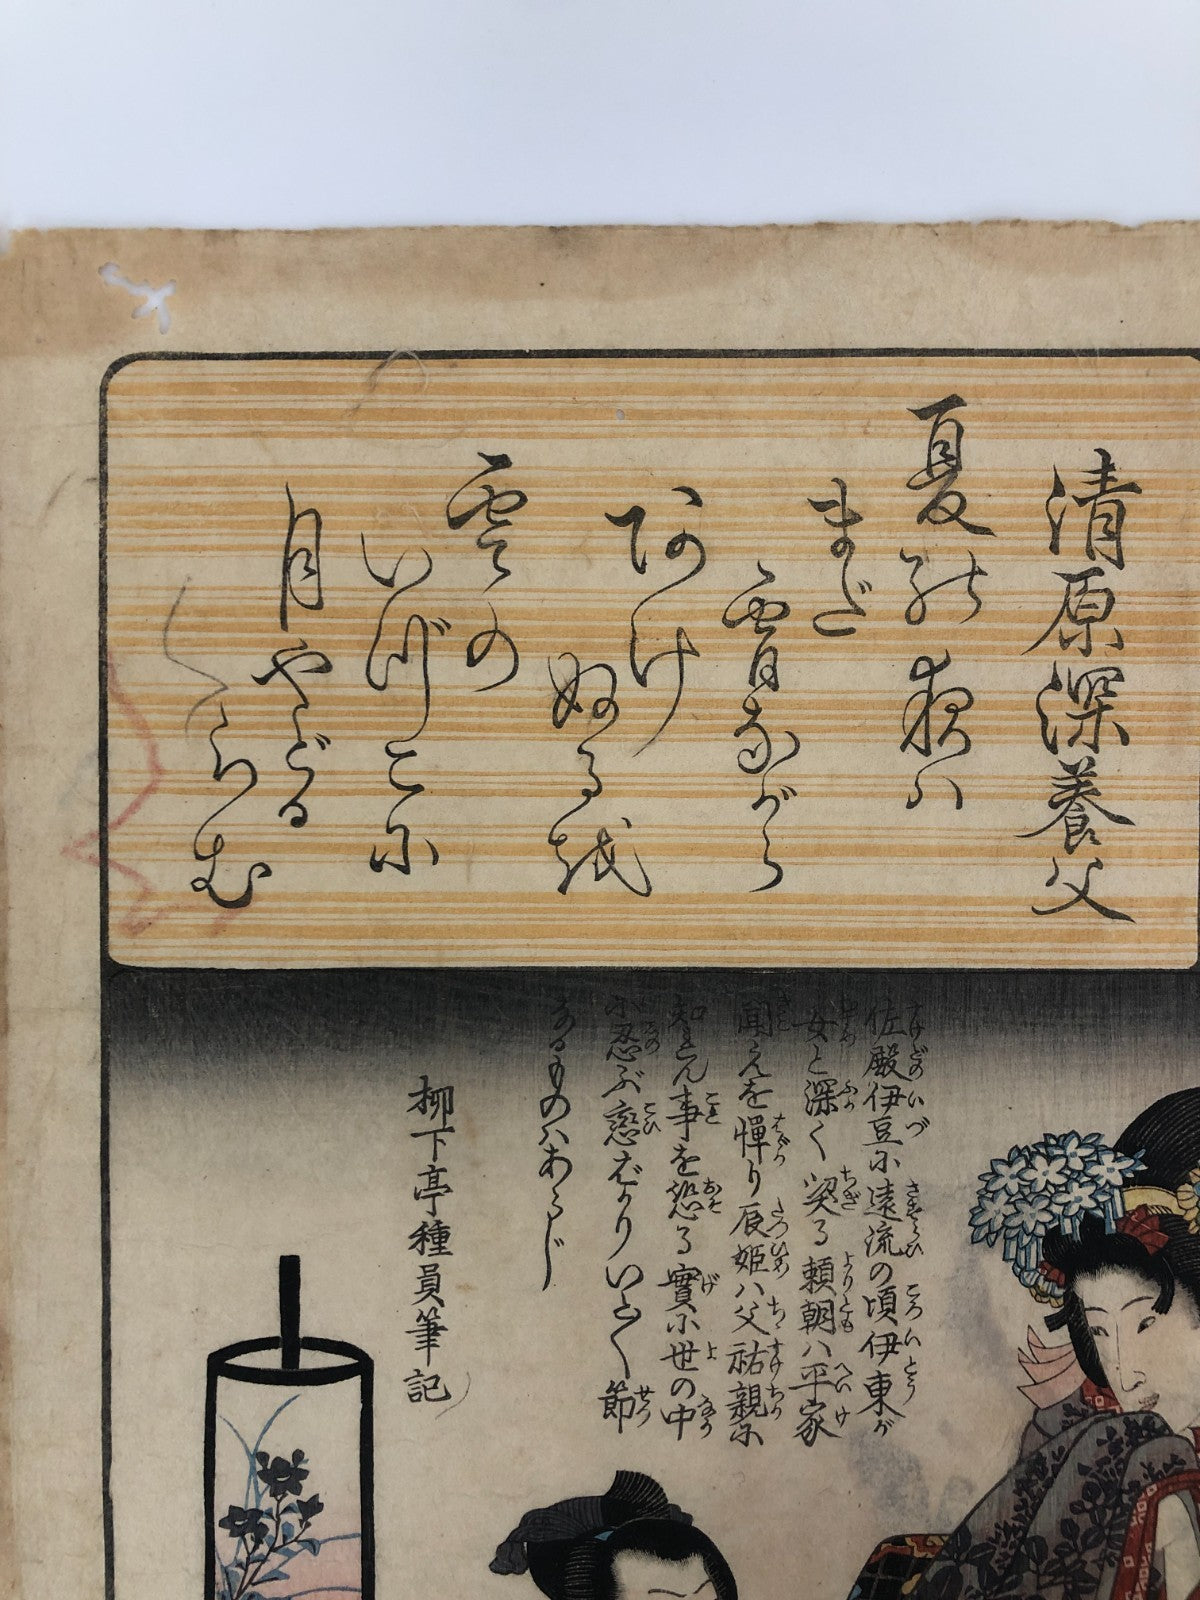 清原深養父
夏の夜ハ
まだ
宵ながら
あけ
ぬるを
雲の
いづこに
月やどる
らむ
佐殿伊豆に遠流の頃伊東が
女と深く契る頼朝ハ平家
聞えを憚り辰姫ハ父祐親に
知れん事を恐る実に世の中
に忍ぶ恋ばかりいとく節
なるものハあらじ
柳下亭種員筆記